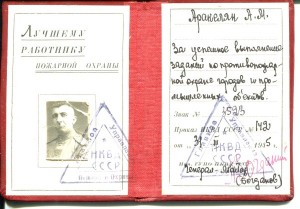 ЛУЧШЕМУ
РАБОТНИКУ
ПОЖАРНОЙ ОХРАНЫ
НКВД
СССР
Аракелян А.М.
За успешное выполнение
заданий по противопожар-
ной охране городов и про-
мышленных объектов.
Знак № 1523
Приказ НКВД СССР № 142
1935
НКВД
СССР
Генерал-Майор
(Богданов)